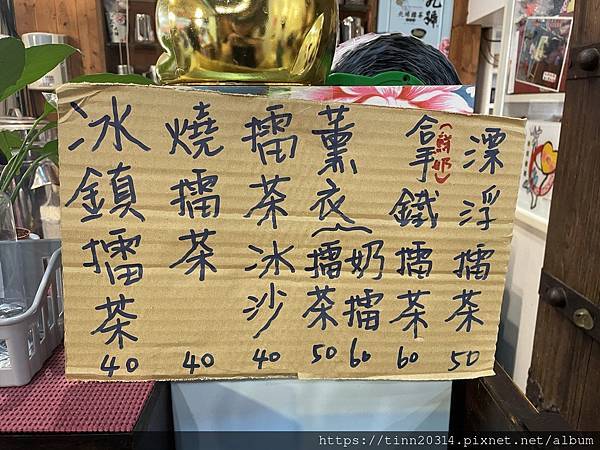 漂浮擂茶 50
拿鐵擂茶 60
(鮮奶)
薰衣擂茶 50
奶擂 60
擂茶冰沙 40
燒擂茶 40
冰鎮擂茶 40
https://tinn20314.pixnet.net/album